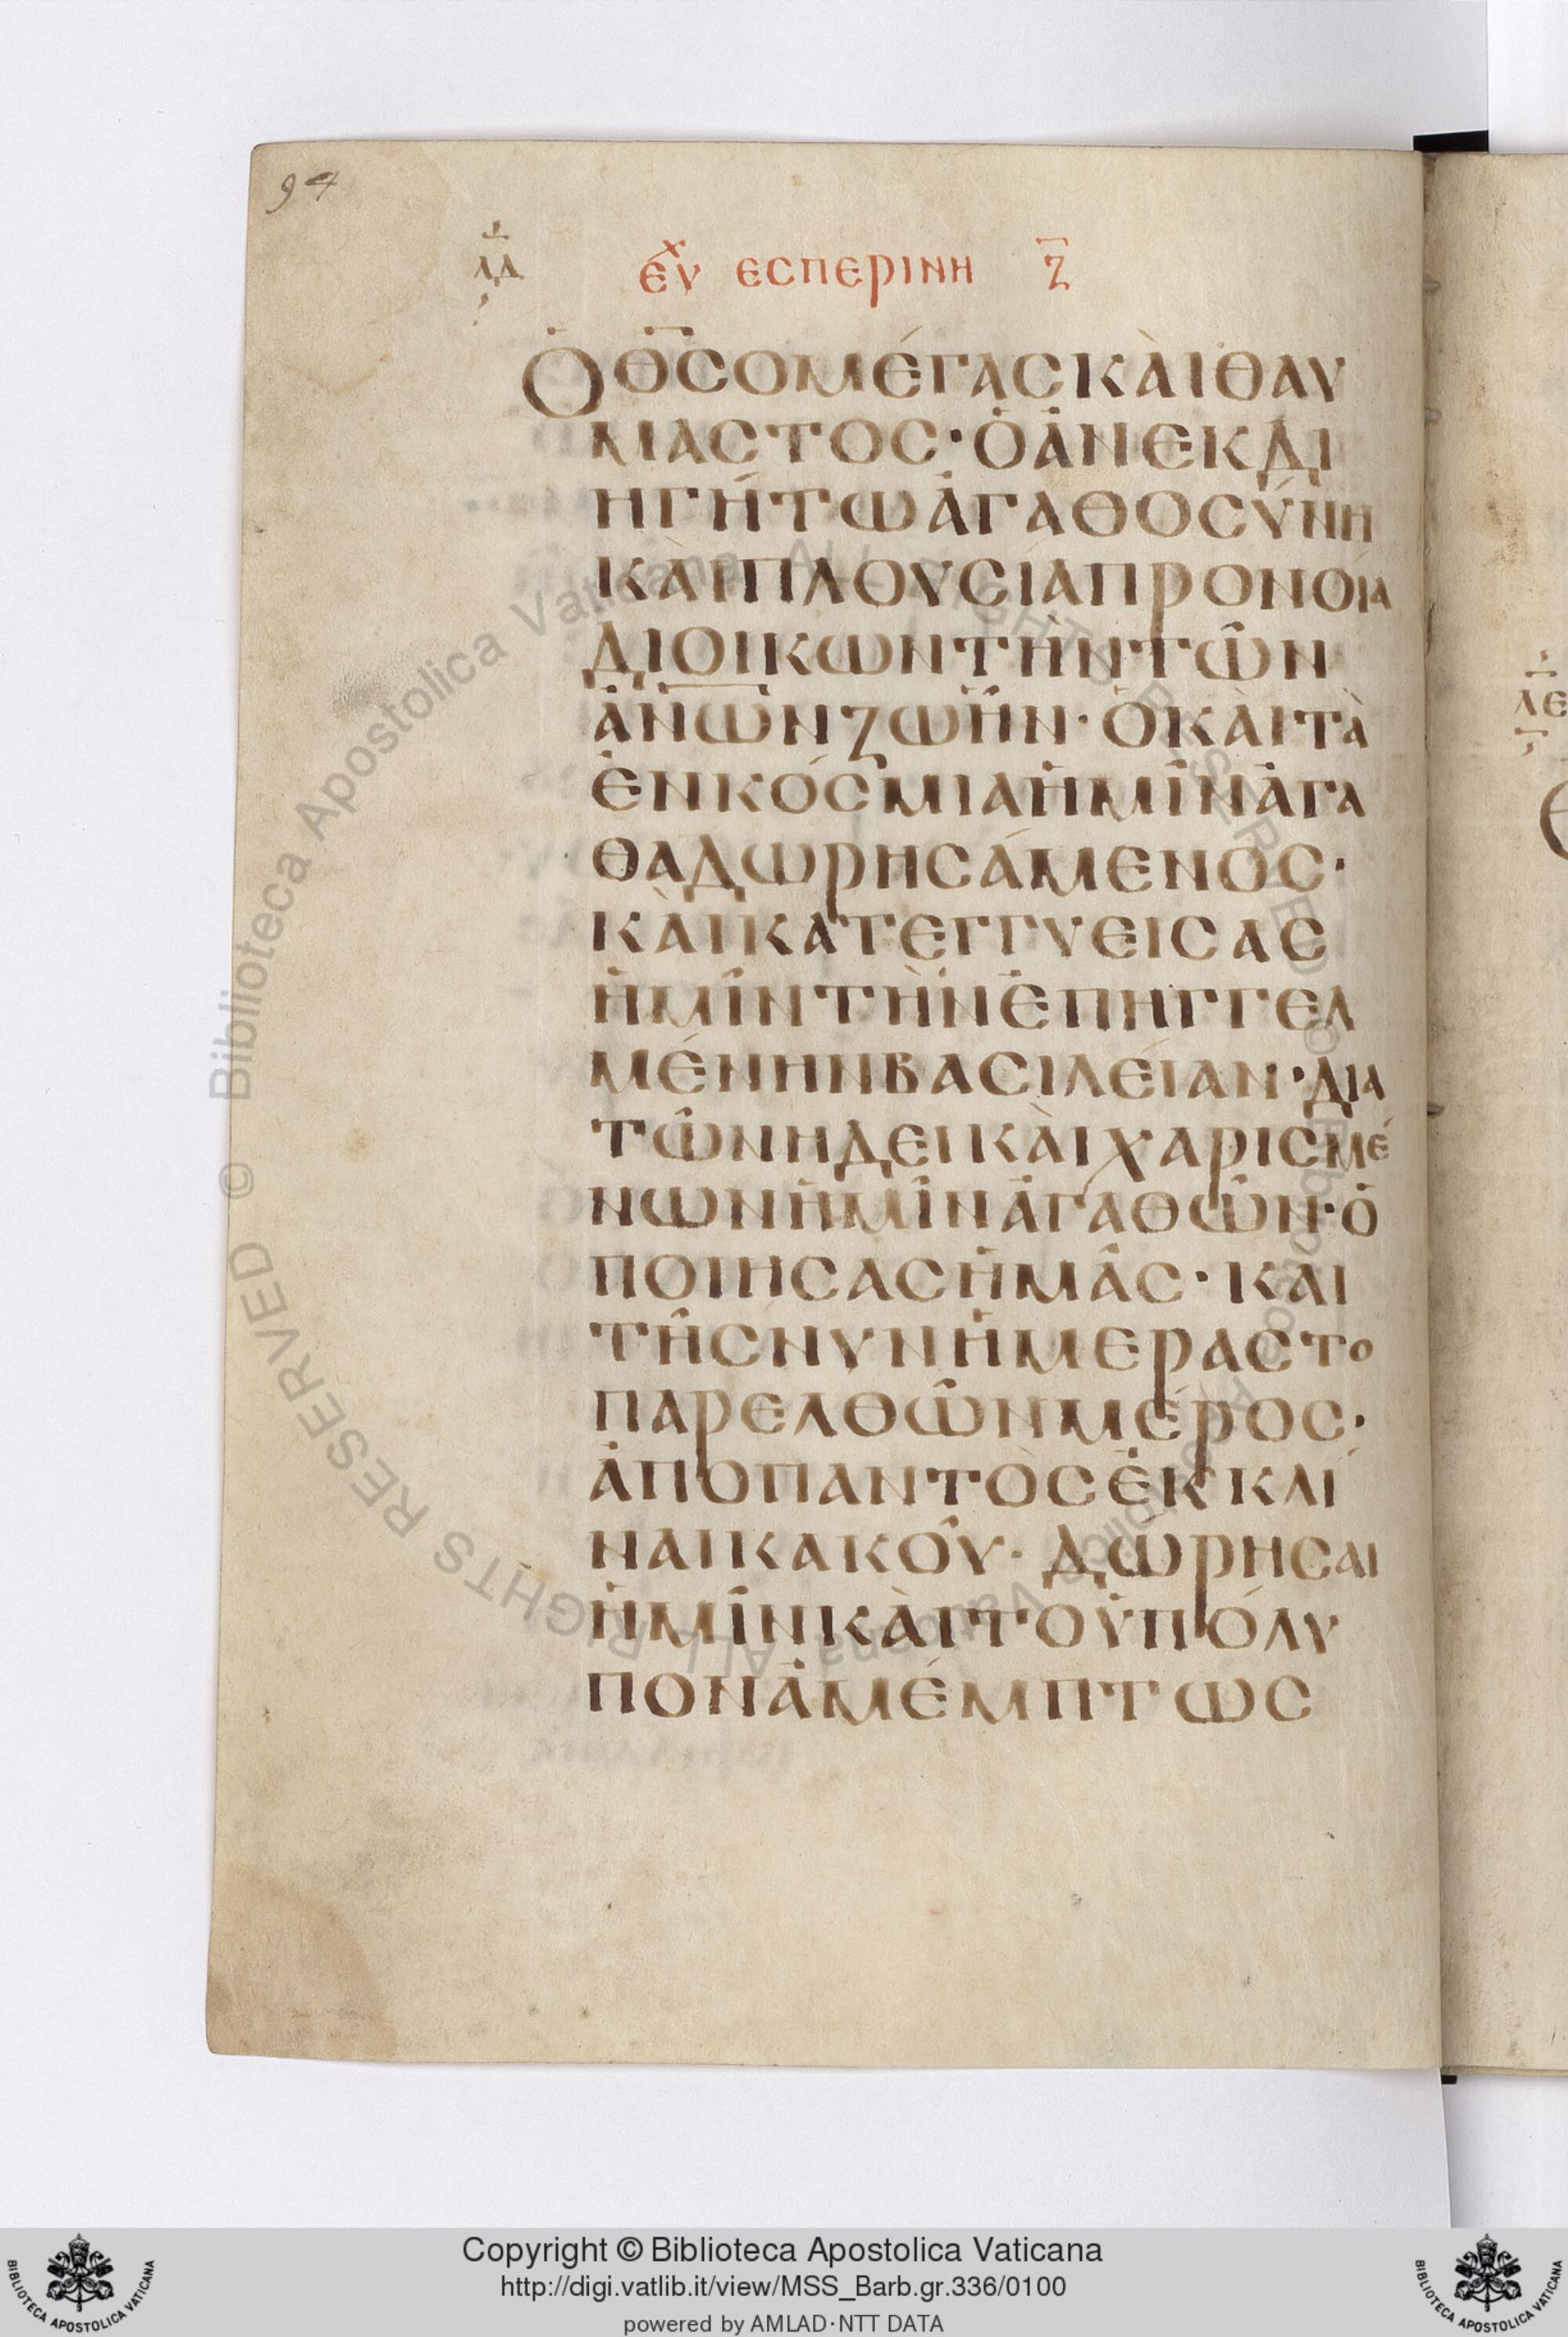 94
λΔ
ευχ εσπερινη ζ
Ὁ Θ̅Σ̅ ΟΜΈΓΑΣΚᾺΙΘΑΥ
ΜΑΣΤΟΣ·ὉἈΝΕΚΔΙ
ΗΓΉΤΩἈΓΑΘΟΣΎΝΗ
ΚᾺΙΠΛΟΥΣΊΑΠΡΟΝΟΊΑ
ΔΙΟΙΚΩΝΤῊΝΤΩ͂Ν
ἈΝ̅Ω̅Ν̅ΖΩΉΝ·ὉΚᾺΙΤᾺ
ἘΝΚΌΣΜΙΑἩΜΙ͂ΝἈΓΑ
ΘΑΔΩΡΗΣΆΜΕΝΟΣ·
ΚᾺΙΚΑΤΕΓΓΥΕΙΣΑΣ
ἩΜΙ͂ΝΤῊΝἘΠΗΓΓΕΛ
ΜΈΝΗΝΒΑΣΙΛΕΊΑΝ·ΔΙΑ
ΤΩ͂ΝΗΔΕΙΚᾺΙΧΑΡΙΣΜΈ
ΝΩΝἩΜΙ͂ΝἈΓΑΘΩ͂Ν·Ὁ
ΠΟΙΗΣΑΣἩΜΑ͂Σ·ΚΑΙ
ΤΗ͂ΣΝΥΝἩΜΕΡΑΣΤΟ
ΠΑΡΕΛΘΩ͂ΝΜΈΡΟΣ·
ἈΠΟΠΑΝΤῸΣἘΚΚΛΙ
ΝΑΙΚΑΚΟΥ͂·ΔΏΡΗΣΑΙ
ἩΜΙ͂ΝΚᾺΙΤΟὙΠΌΛΥ
ΠΟΝἈΜΈΜΠΤΩΣ
λε
© Biblioteca Apostolica Vaticana ALL RIGHTS RESERVED © Biblioteca Apostolica Vaticana ALL RIGHTS RESERVED
Copyright © Biblioteca Apostolica Vaticana
http://digi.vatlib.it/view/MSS_Barb.gr.336/0100
powered by AMLAD·NTT DATA
BIBLIOTECA APOSTOLICA VATICANA
BIBLIOTECA APOSTOLICA VATICANA